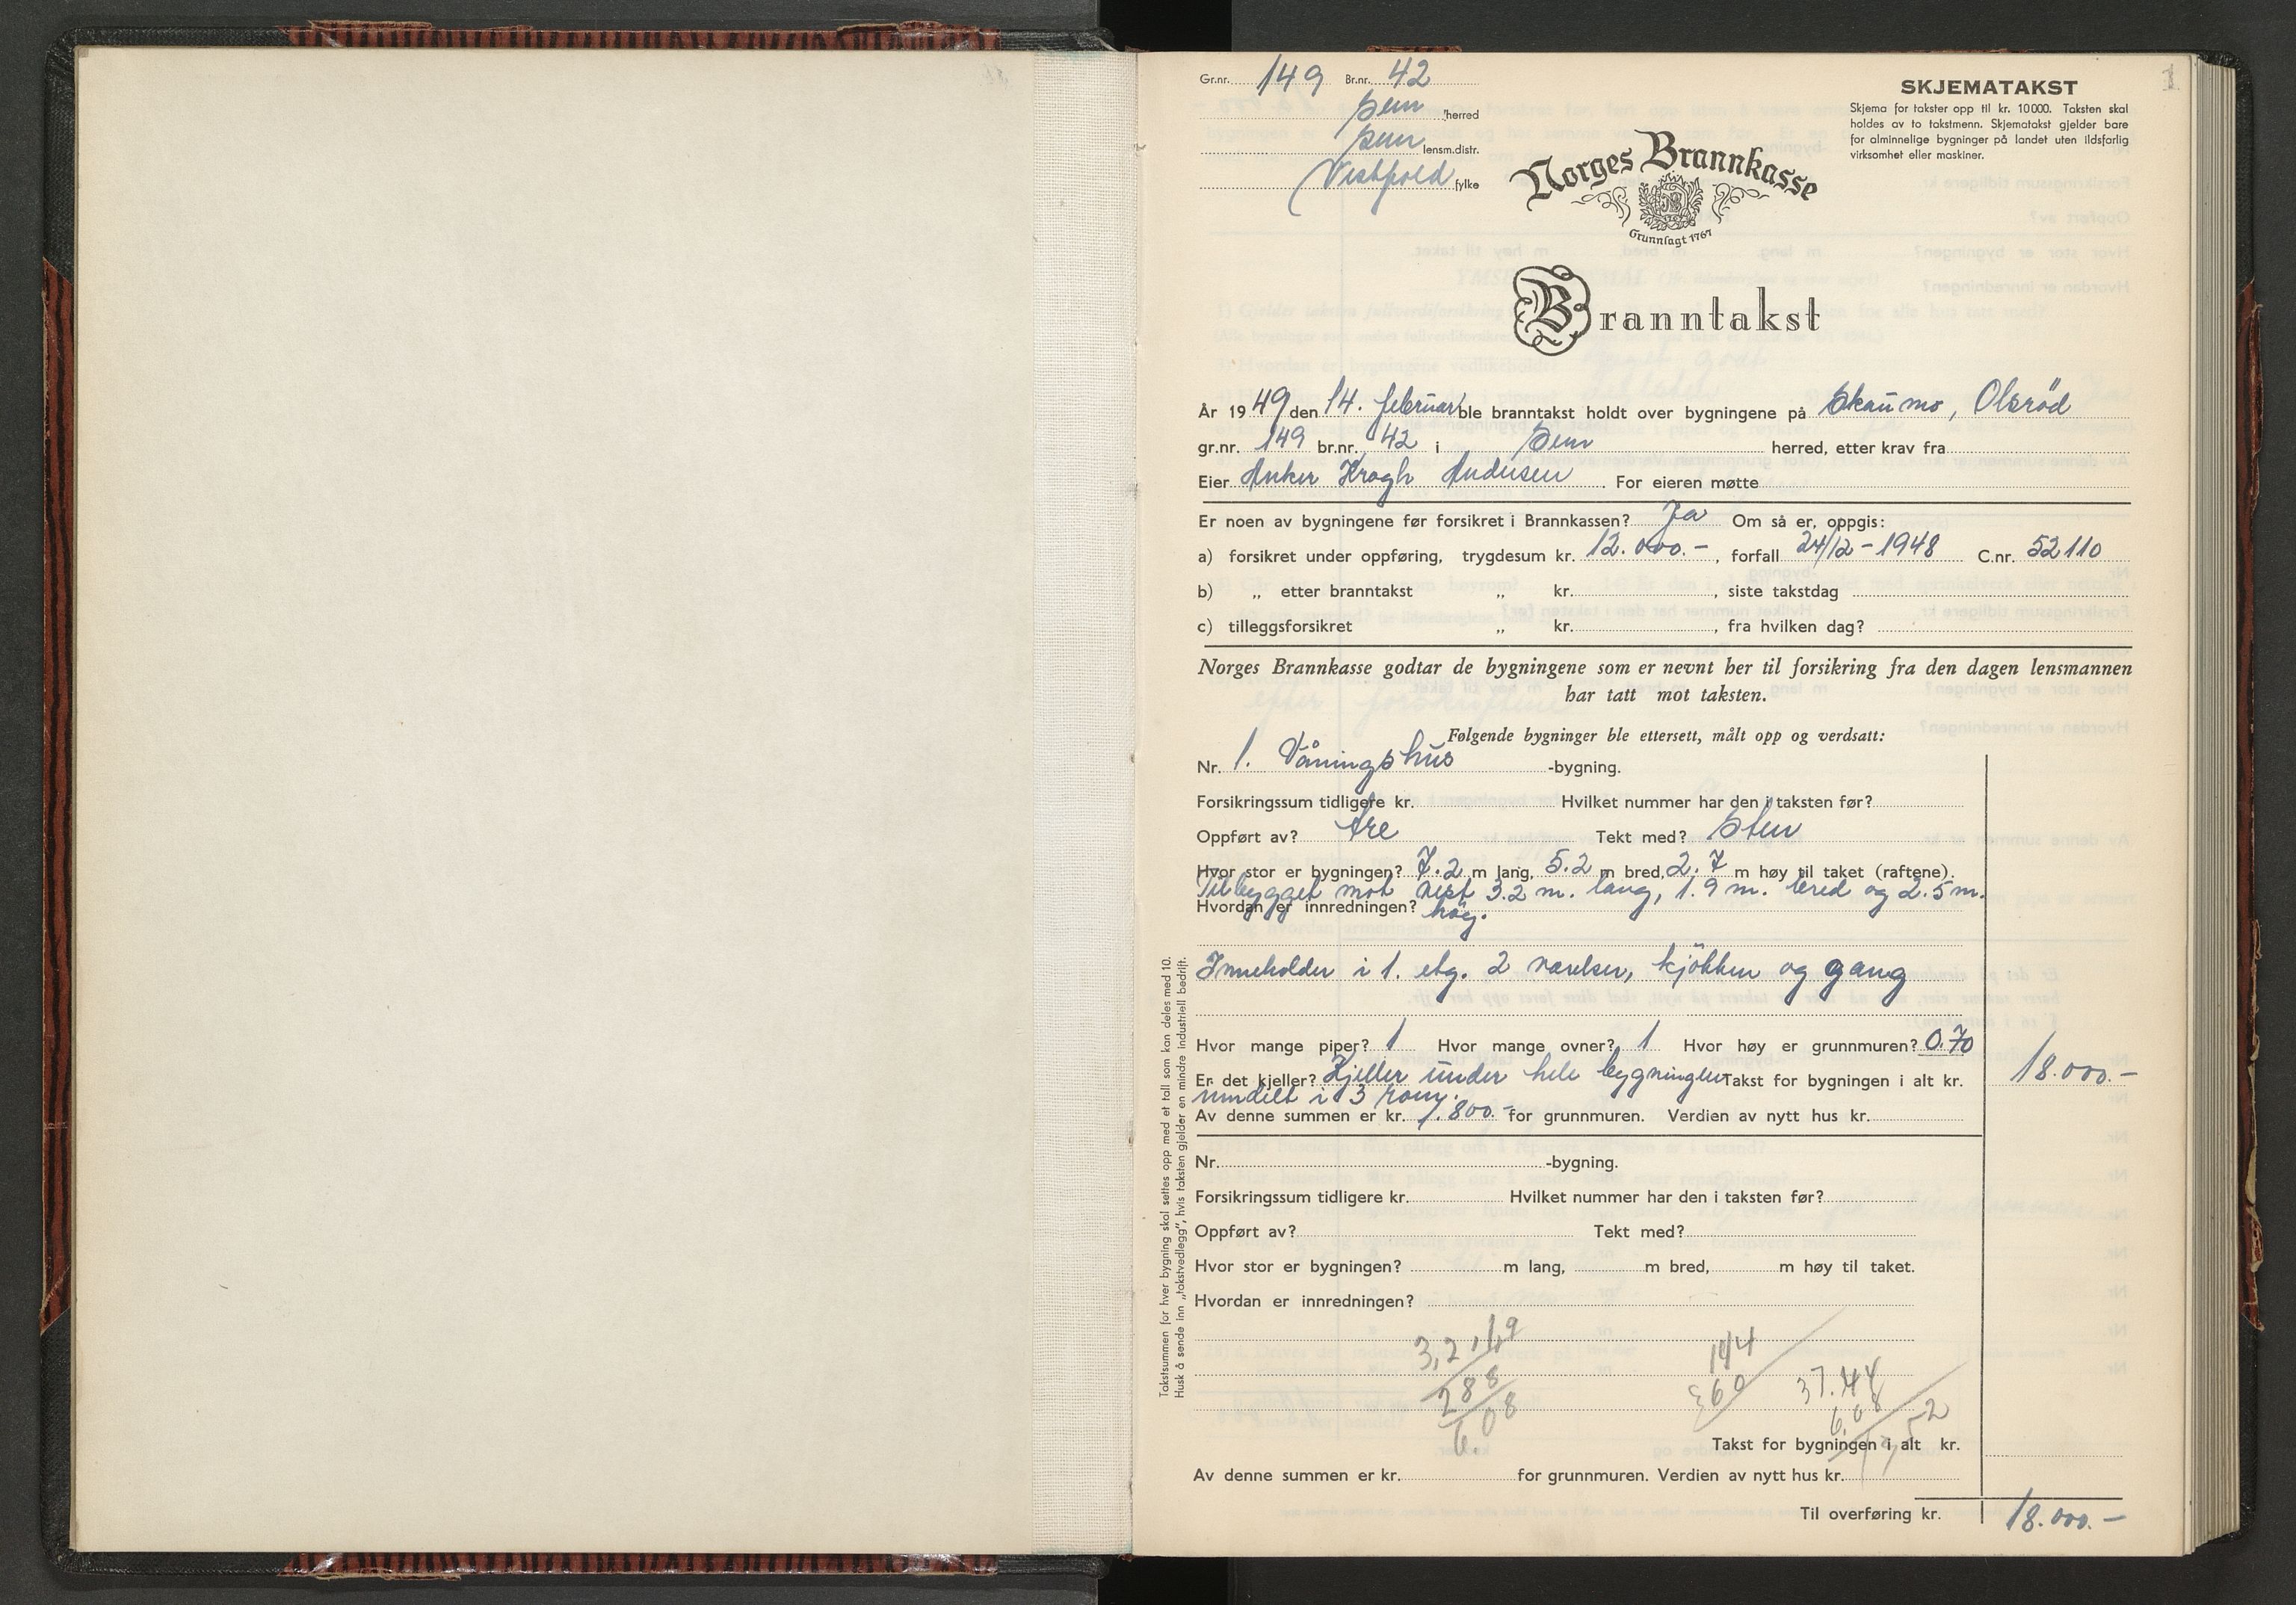 1
Gr.nr. 149 Br.nr. 42
Sem herred
Sem lensm.distr.
Vestfold fylke
SKJEMATAKST
Skjema for takster opp til kr. 10000. Taksten skal
holdes av to takstmenn. Skjematakst gjelder bare
for alminnelige bygninger på landet uten ildsfarlig
virksomhet eller maskiner.
Norges Brannkasse
Grunnlagt 1767
Branntakst
År 1949 den 14. februar ble branntakst holdt over bygningene på Skaumo, Olsröd
gr.nr. 149 br.nr. 42 i Sem herred, etter krav fra
Eier Anker Krogh Andersen. For eieren møtte
Er noen av bygningene før forsikret i Brannkassen? Ja Om så er, oppgis:
a) forsikret under oppføring, trygdesum kr. 12.000.-, forfall 24/12-1948 C.nr. 52110
b) „ etter branntakst „ kr. , siste takstdag
c) tilleggsforsikret „ kr. , fra hvilken dag?
Norges Brannkasse godtar de bygningene som er nevnt her til forsikring fra den dagen lensmannen
har tatt mot taksten.
Følgende bygninger ble ettersett, målt opp og verdsatt:
Nr. 1. Våningshus -bygning.
Forsikringssum tidligere kr. Hvilket nummer har den i taksten før?
Oppført av? tre Tekt med? Sten
Hvor stor er bygningen? 7.2 m lang, 5.2 m bred, 2.7 m høy til taket (raftene).
Tilbygget mot vest 3.2 m. lang, 1.9 m. bred og 2.5 m.
Hvordan er innredningen? høg.
Inneholder i 1. etg. 2 værelser, kjökken og gang
Hvor mange piper? 1 Hvor mange ovner? 1 Hvor høy er grunnmuren? 0.70
Er det kjeller? Kjeller under hele bygningen Takst for bygningen i alt kr. 18.000.-
inndelt i 3 rom.
Av denne summen er kr. 1.800.- for grunnmuren. Verdien av nytt hus kr.
Nr. -bygning.
Forsikringssum tidligere kr. Hvilket nummer har den i taksten før?
Oppført av? Tekt med?
Hvor stor er bygningen? m lang, m bred, m høy til taket.
Hvordan er innredningen?
3,2 · 1,9
288
6.08
144
360
37.44
6.08
Takst for bygningen i alt kr.
Av denne summen er kr. for grunnmuren. Verdien av nytt hus kr.
Til overføring kr. 18.000.-
Takstsummen for hver bygning skal settes opp med et tall som kan deles med 10.
Husk å sende inn „takstvedlegg", hvis taksten gjelder en mindre industriell bedrift.